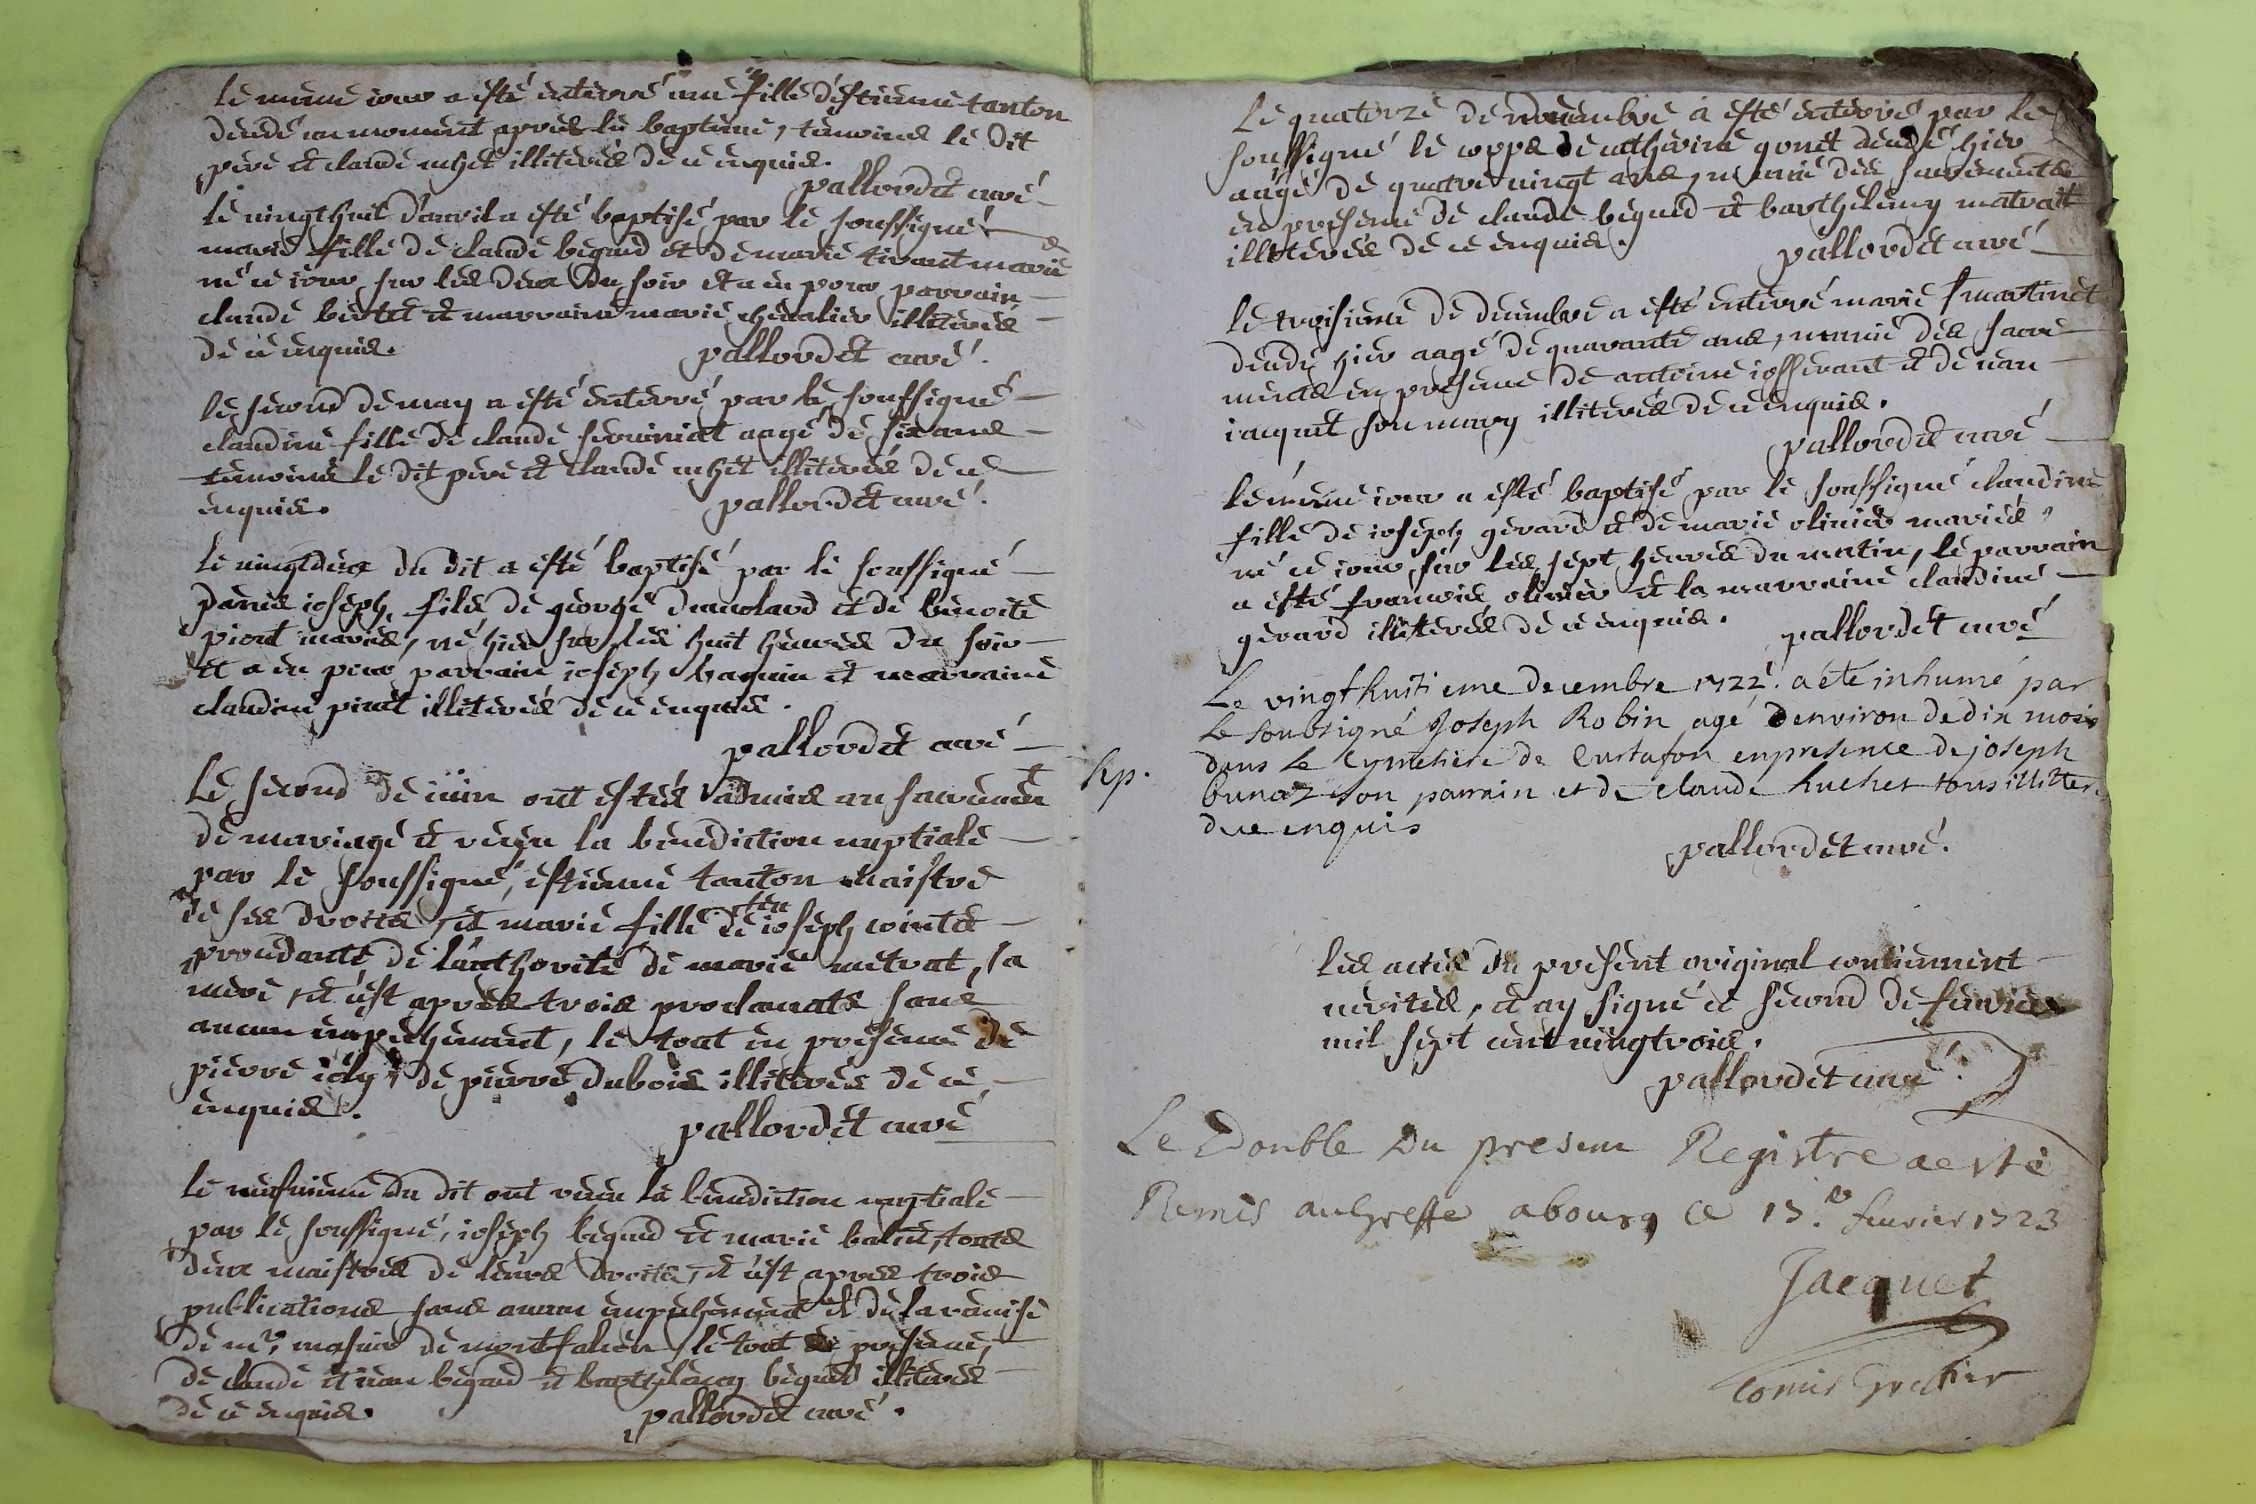 le meme iour a esté enterré une fille d'estienne tanton
decedé un moment apres le bapteme, temoins le dit
pere et claude uchet illiterés de ce enquis.
pallordet curé
le vingthuit d'avril a esté baptisé par le soussigné
marie fille de claude beguid et de marie tirant mariés
né ce iour sur les deux du soir et a eu pour parrain
claude bertet et marraine marie chevalier illiterés
de ce enquis.
pallordet curé.
le second de may a esté enterré par le soussigné
claudine fille de claude seviniat aagé de six ans
temoins le dit pere et claude uchet illiterés de ce
enquis.
pallordet curé.
le vingtdeux du dit a esté baptisé par le soussigné
denis ioseph, fils de george dumolard et de benoite
piont mariés, né hier sur les huit heures du soir
et a eu pour parrain ioseph baquin et marraine
claudine piont illiterés de ce enquis.
pallordet curé
le second de iuin ont estés admis au sacrement
de mariage et receu la benediction nuptiale
par le soussigné, estienne tanton maistre
de ses droits, et marie fille de feu ioseph cointet
procedante de l'authorité de marie metrat, sa
mere, et c'est apres trois proclamats sans
aucun empechement, le tout en presence de
pierre ioly, de pierre dubois illiterés de ce
enquis.
pallordet curé
le neufvieme du dit ont receu la benediction nuptiale
par le soussigné, ioseph beguid et marie balet, touts
deux maistres de leurs droits, et c'est apres trois
publications sans aucun empechement et de la remise
de mr. masuir de montfalcon, le tout en presence,
de claude et iean beguid et barthelemy beguid illiterés
de ce enquis.
pallordet curé.
Le quatorze de novembre a esté enterré par le
soussigné le corps de catherine gonet decedé hier
aagé de quatre vingt ans, munie des sacrements
en presence de claude beguid et barthelemy matrait
illiterés de ce enquis.
pallordet curé
le troisieme de decembre a esté enterré marie martinet
decedé hier aagé de quarante ans, munie des sacre
ments en presence de antoine iosserant et de iean
iacquet son mary illiterés de ce enquis.
pallordet curé
le meme iour a esté baptisé par le soussigné claudine
fille de ioseph gerard et de marie olivier mariés,
né ce iour sur les sept heures du matin, le parrain
a esté francois olivier et la marraine claudine
gerard illiterés de ce enquis.
pallordet curé
Le vingthuiti eme decembre 1722. a été inhumé par
le soubsigné Joseph Robin agé denviron de dix mois
Sep. dans le Cymetiere de Curtafon enpresence de joseph
bunoz son parrain et de claude huchet tous illiter
de ce enquis
pallordet curé.
les actes du present original contiennent
verités, et ay signé ce second de fevrier
mil sept cent vingtrois.
pallordet curé.
Le Double Du present Registre a esté
Remis au Greffe a bourg ce 15.e fevrier 1723
Jacquet
Comis Greffier